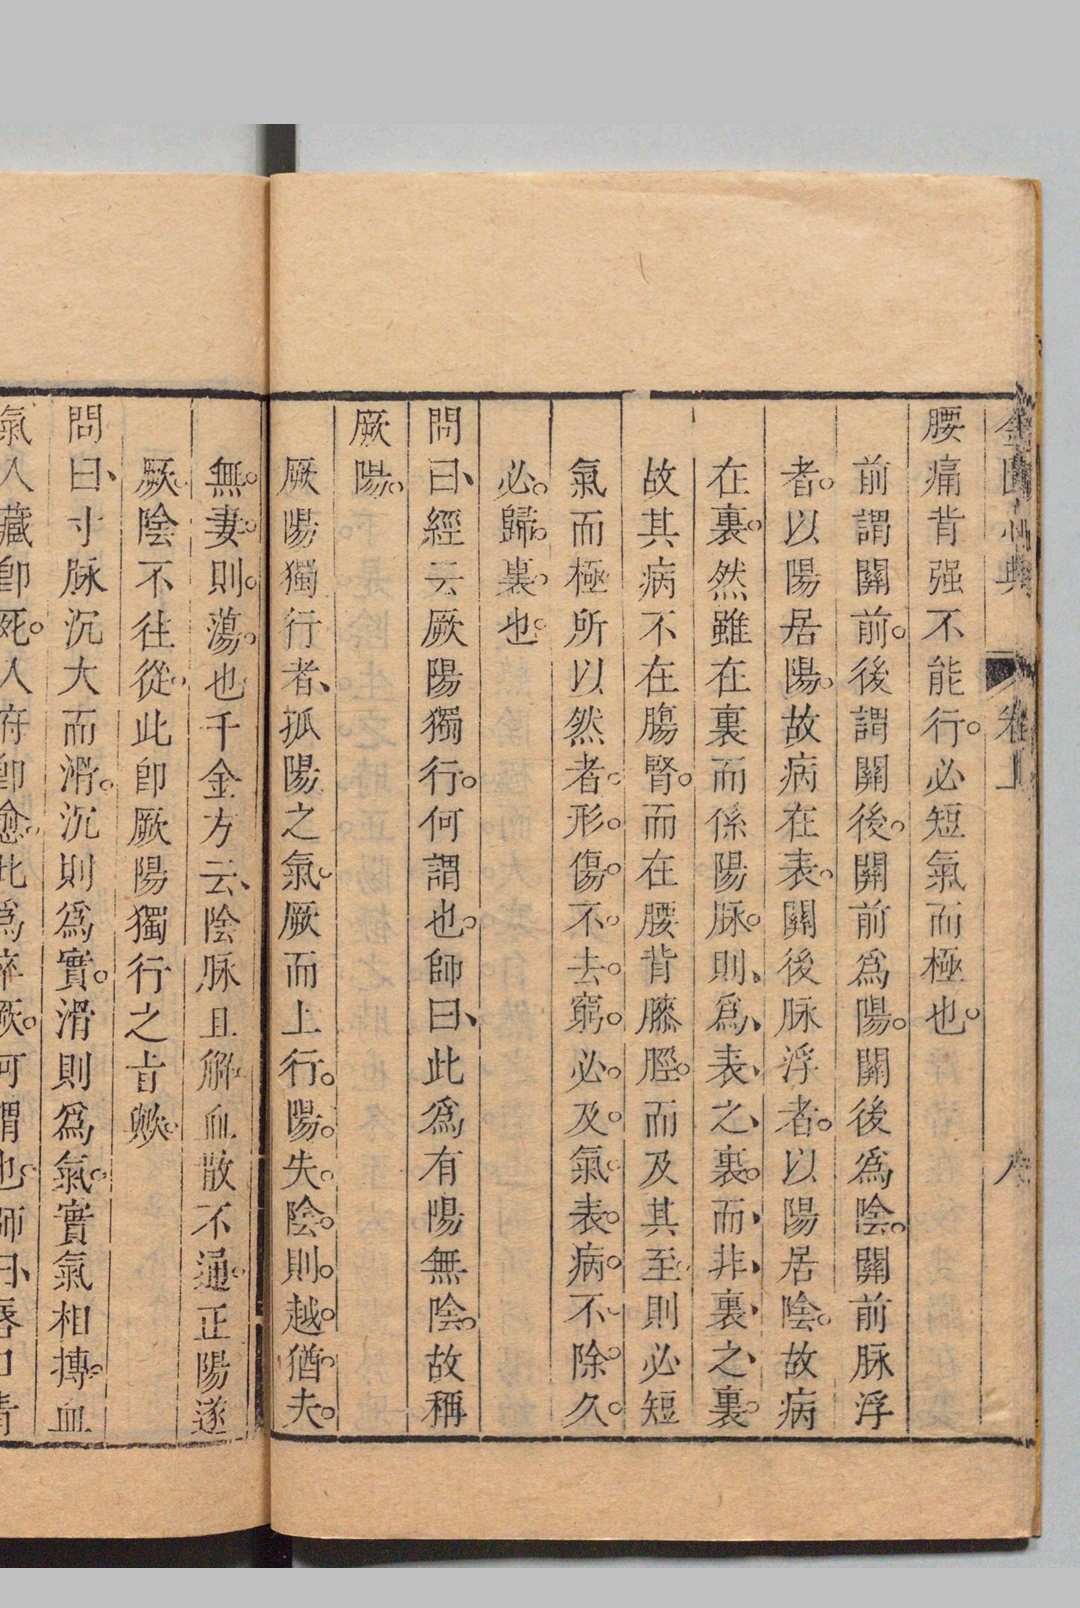 金匱心典 卷上 八
腰痛背强不能行。必短氣而極也。
前謂關前。後謂關後。關前爲陽。關後爲陰。關前脉浮
者。以陽居陽。故病在表。關後脉浮者。以陽居陰。故病
在裏。然雖在裏而係陽脉。則、爲、表、之、裏。而、非、裏、之、裏。
故其病不在腸腎。而在腰背膝脛。而及其至。則必短
氣而極所以然者。形。傷。不。去。窮。必。及。氣。表。病。不。除。久。
必。歸。裏。也。
問曰、經云厥陽獨行。何謂也。師曰、此爲有陽無陰。故稱
厥陽。
厥陽獨行者、孤陽之氣。厥而上行。陽。失。陰。則。越。猶。夫。
無。妻。則。蕩。也千金方云、陰脉且解。血散不通。正陽遂
厥。陰不往從。此卽厥陽獨行之旨歟。
問曰、寸脉沉大而滑。沉則爲實。滑則爲氣。實氣相摶。血
氣入藏卽死。入府卽愈。此爲卒厥。何謂也。師曰、唇口靑